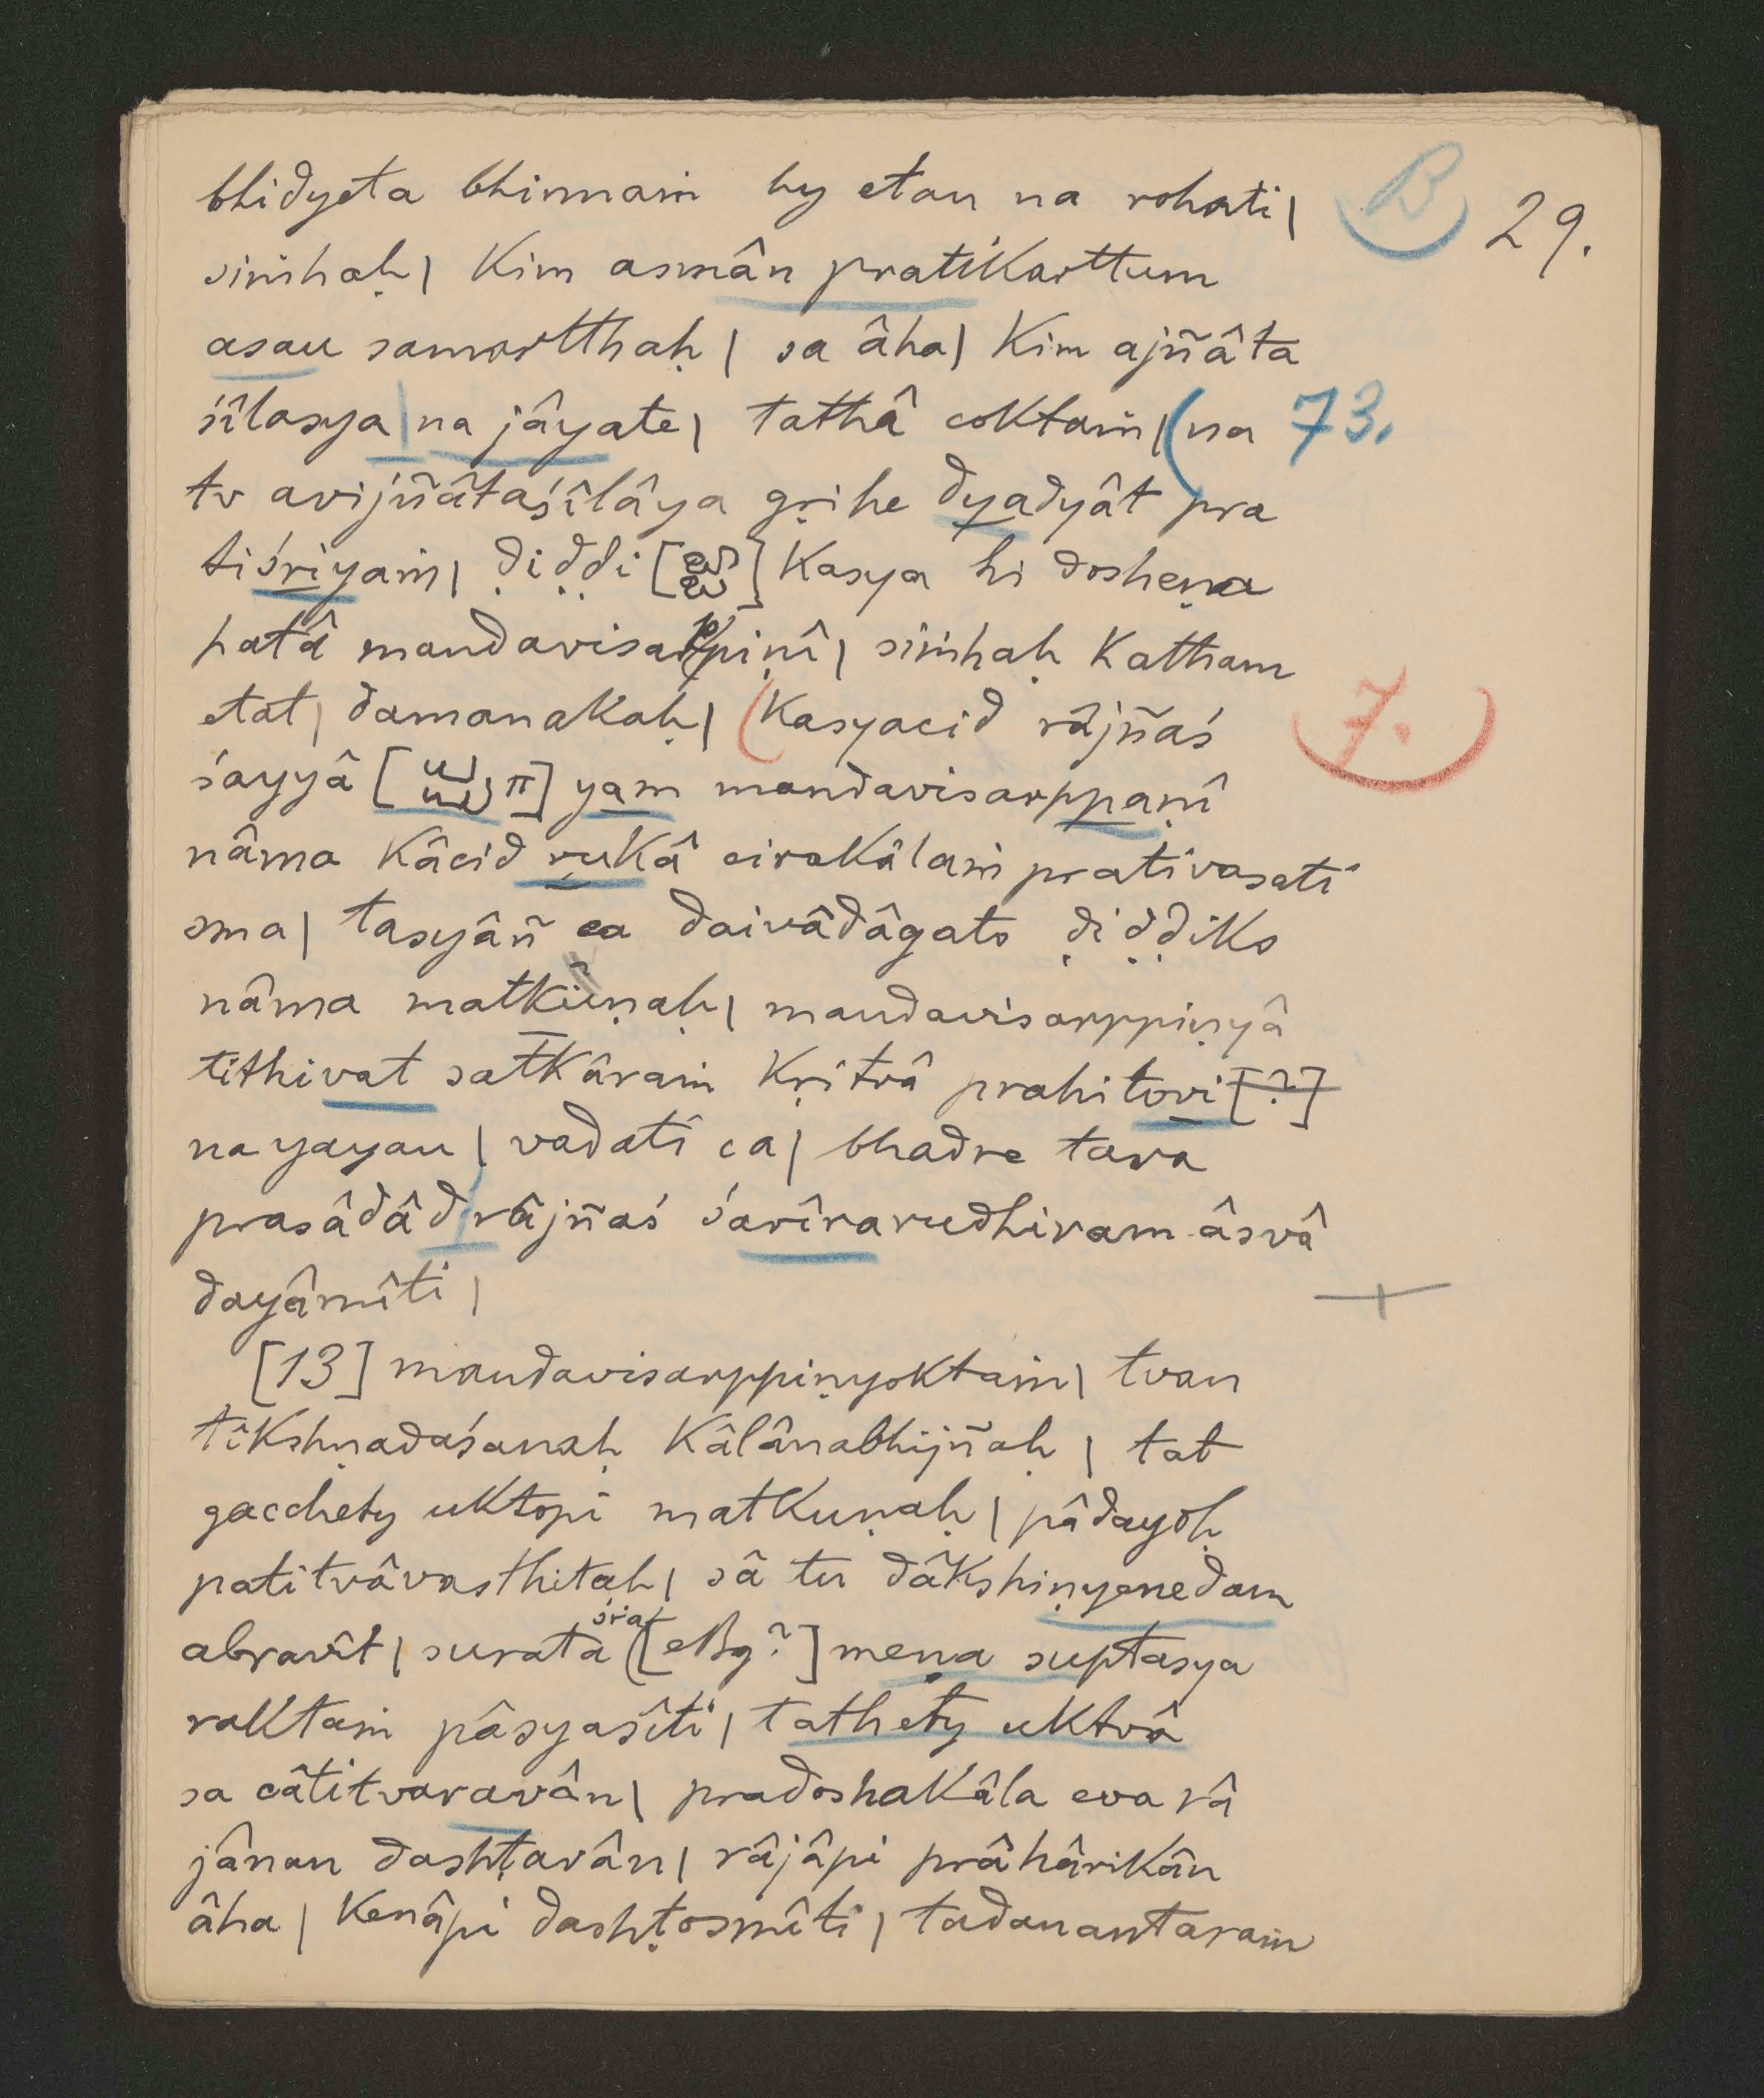 bhidyeta bhinnaṁ hy etan na rohati|
B 29.
siṁhaḥ| Kim asmân pratikarttum
asau samartthaḥ| sa âha| Kim ajñâta
śîlasya|na jâyate| tathâ coktaṁ|(na 73.
tv avijñâtaśîlâya gṛihe dyadyât pra
tiśriyaṁ| ḍiḍḍi [ ] Kasya hi dosheṇa
hatâ mandavisarppiṇî| siṁhaḥ Katham
etat| damanakaḥ| (Kasyacid râjñaś
7.
śayyâ [ ] yam mandavisarppaṇî
nâma kâcid yukâ cirakâlaṁ prativasati
sma| tasyâñ ca daivâdâgato ḍiḍḍiko
nâma matkuṇaḥ| mandavisarppiṇyâ
tithivat satkâraṁ kṛitvâ prahitovi[?]
na yayau| vadati ca| bhadre tava
prasâdâd|râjñaś śarîrarudhiram âsvâ
dayâmîti|
[13] mandavisarppiṇyoktaṁ| tvan
tîkshṇadaśanaḥ Kâlânabhijñaḥ| tat
gacchety uktopi matkuṇaḥ| pâdayoḥ
patitvâvasthitaḥ| sâ tu dâkshiṇyenedam
abravît| surata śra [ ?] meṇa suptasya
raktaṁ pâsyasîti| tathety uktvâ
sa câtitvaravân| pradoshakâla eva râ
jânan dashṭavân| râjâpi prâhârikân
âha| Kenâpi dashṭosmîti| tadanantaraṁ